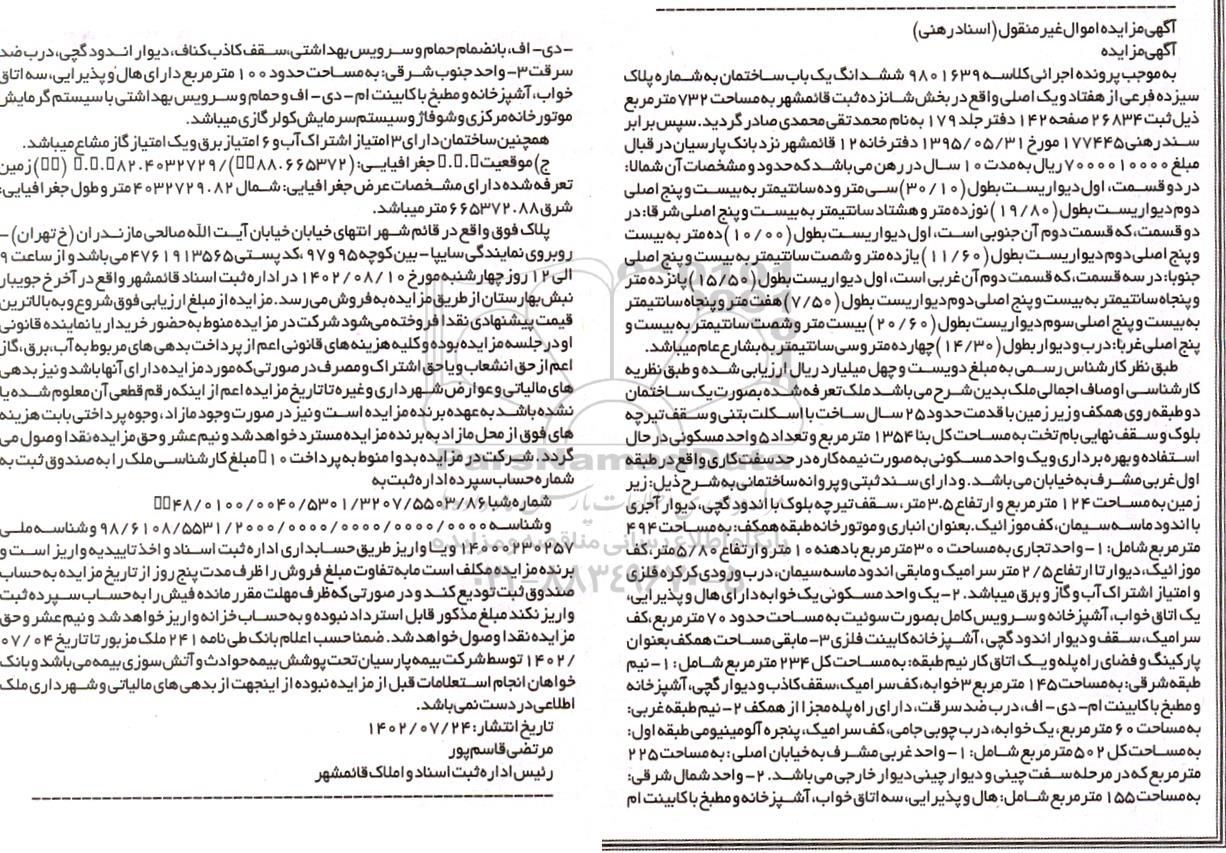 آگهی مزایده اموال غیر منقول (اسناد رهنی)
آگهی مزایده
به موجب پرونده اجرائی کلاسه ۹۸۰۱۶۳۹ ششدانگ یک باب ساختمان به شماره پلاک
سیزده فرعی از هفتاد و یک اصلی واقع در بخش شانزده ثبت قائمشهر به مساحت ۷۳۲ مترمربع
ذیل ثبت ۲۶۸۳۴ صفحه ۱۴۲ دفتر جلد ۱۷۹ به نام محمدتقی محمدی صادر گردید. سپس برابر
سند رهنی ۱۷۷۴۴۵ مورخ ۱۳۹۵/۰۵/۳۱ دفترخانه ۱۲ قائمشهر نزد بانک پارسیان در قبال
مبلغ ۷۰۰۰۰۱۰۰۰۰ ریال به مدت ۱۰ سال در رهن می باشد که حدود و مشخصات آن شمالا:
در دو قسمت، اول دیواریست بطول (۳۰/۱۰) سی متر و ده سانتیمتر به بیست و پنج اصلی
دوم دیواریست بطول (۱۹/۸۰) نوزده متر و هشتاد سانتیمتر به بیست و پنج اصلی شرقا: در
دو قسمت، که قسمت دوم آن جنوبی است، اول دیواریست بطول (۱۰/۰۰) ده متر به بیست
و پنج اصلی دوم دیواریست بطول (۱۱/۶۰) یازده متر و شصت سانتیمتر به بیست و پنج اصلی
جنوبا: در سه قسمت، که قسمت دوم آن غربی است، اول دیواریست بطول (۱۵/۵۰) پانزده متر
و پنجاه سانتیمتر به بیست و پنج اصلی دوم دیواریست بطول (۷/۵۰) هفت متر و پنجاه سانتیمتر
به بیست و پنج اصلی سوم دیواریست بطول (۲۰/۶۰) بیست متر و شصت سانتیمتر به بیست و
پنج اصلی غربا: درب و دیوار بطول (۱۴/۳۰) چهارده متر و سی سانتیمتر به بشارع عام میباشد.
طبق نظر کارشناس رسمی به مبلغ دویست و چهل میلیارد ریال ارزیابی شده و طبق نظریه
کارشناسی اوصاف اجمالی ملک بدین شرح می باشد ملک تعرفه شده بصورت یک ساختمان
دو طبقه روی همکف و زیر زمین با قدمت حدود ۲۵ سال ساخت با اسکلت بتنی و سقف تیرچه
بلوک و سقف نهایی بام تخت به مساحت کل بنا ۱۳۵۴ مترمربع و تعداد ۵ واحد مسکونی در حال
استفاده و بهره برداری و یک واحد مسکونی به صورت نیمه کاره در حد سفت کاری واقع در طبقه
اول غربی مشرف به خیابان می باشد. و دارای سند ثبتی و پروانه ساختمانی به شرح ذیل: زیر
زمین به مساحت ۱۲۴ مترمربع و ارتفاع ۳.۵ متر، سقف تیرچه بلوک با اندود گچی، دیوار آجری
با اندود ماسه سیمان، کف موزائیک. بعنوان انباری و موتور خانه طبقه همکف: به مساحت ۴۹۴
مترمربع شامل: ۱- واحد تجاری به مساحت ۳۰۰ مترمربع با دهنه ۱۰ متر و ارتفاع ۵/۸۰ متر، کف
موزائیک، دیوار تا ارتفاع ۲/۵ متر سرامیک و مابقی اندود ماسه سیمان، درب ورودی کرکره فلزی
و امتیاز اشتراک آب و گاز و برق میباشد. ۲- یک واحد مسکونی یک خوابه دارای هال و پذیرایی،
یک اتاق خواب، آشپزخانه و سرویس کامل بصورت سوئیت به مساحت حدود ۷۰ مترمربع، کف
سرامیک، سقف و دیوار اندود گچی، آشپزخانه کابینت فلزی ۳- مابقی مساحت همکف بعنوان
پارکینگ و فضای راه پله و یک اتاق کار نیم طبقه: به مساحت کل ۲۳۴ مترمربع شامل: ۱- نیم
طبقه شرقی: به مساحت ۱۴۵ مترمربع ۳ خوابه، کف سرامیک، سقف کاذب و دیوار گچی، آشپزخانه
و مطبخ با کابینت ام-دی- اف، درب ضد سرقت، دارای راه پله مجزا از همکف ۲- نیم طبقه غربی:
به مساحت ۶۰ مترمربع، یک خوابه، درب چوبی جامی، کف سرامیک، پنجره آلومینیومی طبقه اول:
به مساحت کل ۵۰۲ مترمربع شامل: ۱- واحد غربی مشرف به خیابان اصلی: به مساحت ۲۲۵
مترمربع که در مرحله سفت چینی و دیوار چینی دیوار خارجی می باشد. ۲- واحد شمال شرقی:
به مساحت ۱۵۵ مترمربع شامل: هال و پذیرایی، سه اتاق خواب، آشپزخانه و مطبخ با کابینت ام
-دی- اف، بانضمام حمام و سرویس بهداشتی، سقف کاذب کناف، دیوار اندود گچی، درب ضد
سرقت ۳- واحد جنوب شرقی: به مساحت حدود ۱۰۰ مترمربع دارای هال و پذیرایی، سه اتاق
خواب، آشپزخانه و مطبخ با کابینت ام-دی- اف و حمام و سرویس بهداشتی با سیستم گرمایش
موتورخانه مرکزی و شوفاژ و سیستم سرمایش کولر گازی میباشد.
همچنین ساختمان دارای ۳ امتیاز اشتراک آب و ۶ امتیاز برق و یک امتیاز گاز مشاع میباشد.
ج) موقعیت جغرافیایی: (۸۸.۶۶۵۳۷۲)/۸۲.۴۰۳۲۷۲۹ زمین
تعرفه شده دارای مشخصات عرض جغرافیایی: شمال ۴۰۳۲۷۲۹.۸۲ متر و طول جغرافیایی:
شرق ۶۶۵۳۷۲.۸۸ متر میباشد.
پلاک فوق واقع در قائم شهر انتهای خیابان خیابان آیت الله صالحی مازندران (خ تهران) -
روبروی نمایندگی سایپا- بین کوچه ۹۵ و ۹۷، کد پستی ۴۷۶۱۹۱۳۵۶۵ می باشد و از ساعت ۹
الی ۱۲ روز چهارشنبه مورخ ۱۴۰۲/۰۸/۱۰ در اداره ثبت اسناد قائمشهر واقع در آخر خ جویبار
نبش بهارستان از طریق مزایده به فروش می رسد. مزایده از مبلغ ارزیابی فوق شروع و به بالاترین
قیمت پیشنهادی نقدا فروخته می شود شرکت در مزایده منوط به حضور خریدار یا نماینده قانونی
او در جلسه مزایده بوده و کلیه هزینه های قانونی اعم از پرداخت بدهی های مربوط به آب، برق، گاز
اعم از حق انشعاب و یا حق اشتراک و مصرف در صورتی که مورد مزایده دارای آنها باشد و نیز بدهی
های مالیاتی و عوارض شهرداری و غیره تا تاریخ مزایده اعم از اینکه رقم قطعی آن معلوم شده یا
نشده باشد به عهده برنده مزایده است و نیز در صورت وجود مازاد، وجوه پرداختی بابت هزینه
های فوق از محل مازاد به برنده مزایده مسترد خواهد شد و نیم عشر و حق مزایده نقدا وصول می
گردد. شرکت در مزایده بدوا منوط به پرداخت ۱۰ مبلغ کارشناسی ملک را به صندوق ثبت به
شماره حساب سپرده اداره ثبت به
شماره شبا ۴۸/۰۱۰۰/۰۰۴۰/۵۳۰۱/۳۲۰۷/۵۵۰۳/۸۶
و شناسه ۹۸/۶۱۰۸/۵۵۳۱/۲۰۰۰/۰۰۰۰/۰۰۰۰/۰۰۰۰/۰۰۰۰ و شناسه ملی
۱۴۰۰۰۲۳۰۲۵۷ و یا واریز طریق حسابداری اداره ثبت اسناد و اخذ تاییدیه واریز است و
برنده مزایده مکلف است مابه تفاوت مبلغ فروش را ظرف مدت پنج روز از تاریخ مزایده به حساب
صندوق ثبت تودیع کند و در صورتی که ظرف مهلت مقرر مانده فیش را به حساب سپرده ثبت
واریز نکند مبلغ مذکور قابل استرداد نبوده و به حساب خزانه واریز خواهد شد و نیم عشر و حق
مزایده نقدا وصول خواهد شد. ضمنا حسب اعلام بانک طی نامه ۲۴۱ ملک مزبور تا تاریخ ۰۷/۰۴
/۱۴۰۲ توسط شرکت بیمه پارسیان تحت پوشش بیمه حوادث و آتش سوزی بیمه می باشد و بانک
خواهان انجام استعلامات قبل از مزایده نبوده از اینجهت از بدهی های مالیاتی و شهرداری ملک
اطلاعی در دست نمی باشد.
تاریخ انتشار: ۱۴۰۲/۰۷/۲۴
مرتضی قاسم پور
رئیس اداره ثبت اسناد و املاک قائمشهر
ParsNamadData
پایگاه اطلاع رسانی مناقصه و مزایده
۰۲۱-۸۸۳۴۹۶۷۰-۵